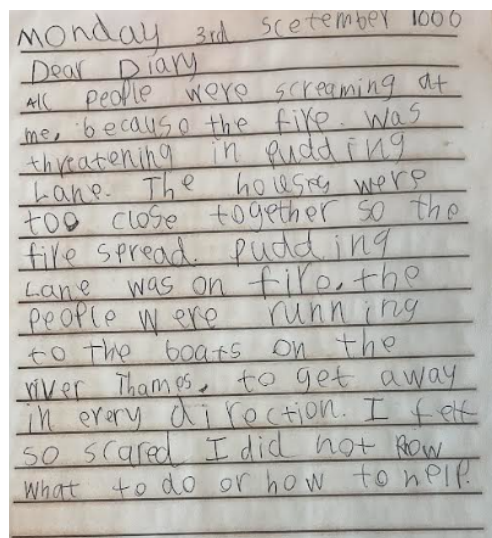 Monday 3rd Scetember 1666
Dear Diary
All people were screaming at
me, because the fire. was
threatening in pudding
Lane. The houses were
too close together so the
fire spread. pudding
Lane was on fire, the
people were running
to the boats on the
river Thames, to get away
in every direction. I felt
so scared I did not know
what to do or how to help.